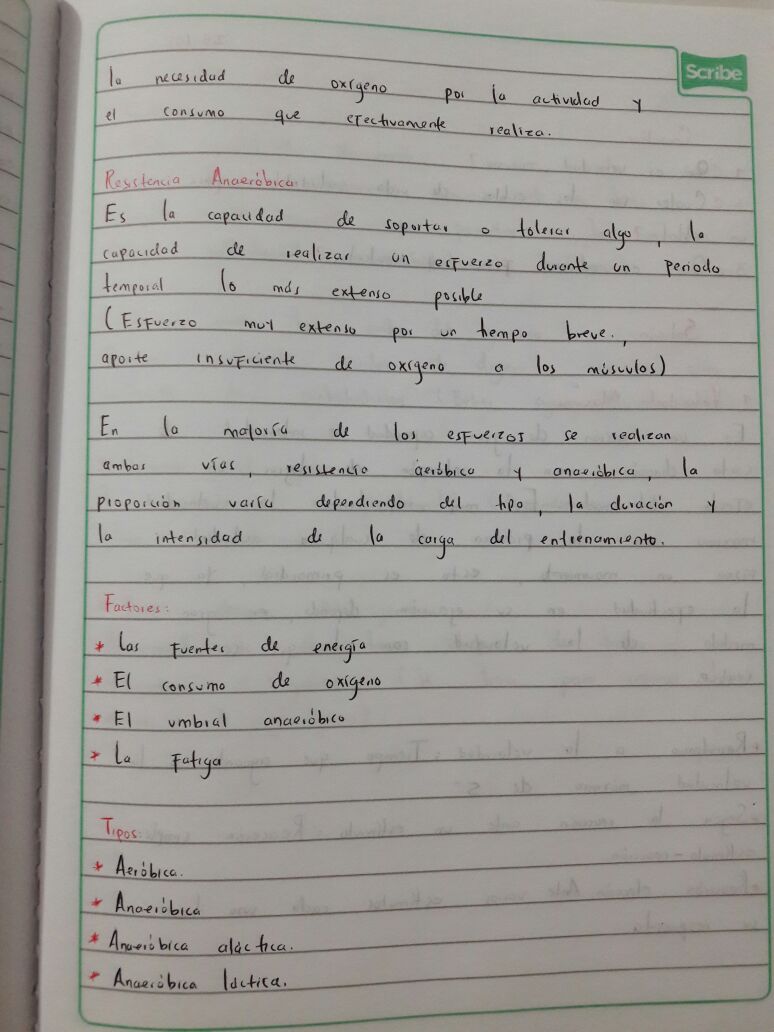 Scribe
la necesidad de oxígeno por la actividad y
el consumo que efectivamente realiza.
Resistencia Anaeróbica
Es la capacidad de soportar o tolerar algo, la
capacidad de realizar un esfuerzo durante un periodo
temporal lo más extenso posible
(Esfuerzo muy extenso por un tiempo breve.,
aporte insuficiente de oxígeno a los músculos)
En la mayoría de los esfuerzos se realizan
ambas vías, resistencia aeróbica y anaeróbica, la
proporción varía dependiendo del tipo, la duración y
la intensidad de la carga del entrenamiento.
Factores:
* Las fuentes de energía
* El consumo de oxígeno
* El umbral anaeróbico
* La fatiga
Tipos:
* Aeróbica.
* Anaeróbica
* Anaeróbica aláctica.
* Anaeróbica láctica.